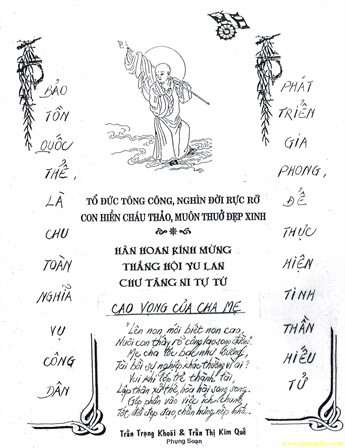 BẢO
TỒN
QUỐC
THỂ,
LÀ
CHU
TOÀN
NGHĨA
VỤ
CÔNG
DÂN
PHÁT
TRIỂN
GIA
PHONG,
ĐỂ
THỰC
HIỆN
TÌNH
THẦN
HIẾU
TỬ
TỔ ĐỨC TÔNG CÔNG, NGHÌN ĐỜI RỰC RỠ
CON HIỀN CHÁU THẢO, MUÔN THUỞ ĐẸP XINH
HÂN HOAN KÍNH MỪNG
THÁNG HỘI VU LAN
CHƯ TĂNG NI TỰ TỨ
CAO VỌNG CỦA CHA MẸ
"Lên non, mới biết non cao,
Nuôi con thấy rõ công lao sinh thành"
Mẹ cha tóc bạc như
Tài bồi sự nghiệp khác thường vì ai?
Vui khi lớp trẻ thành tài,
Lập thân xử thế, hòa hài song song.
Góp phần vào việc ích chung,
Tốt đời đẹp đạo, chấn hưng nếp nhà...
Trần Trọng Khoái & Trần Thị Kim Quế
Phụng Soạn